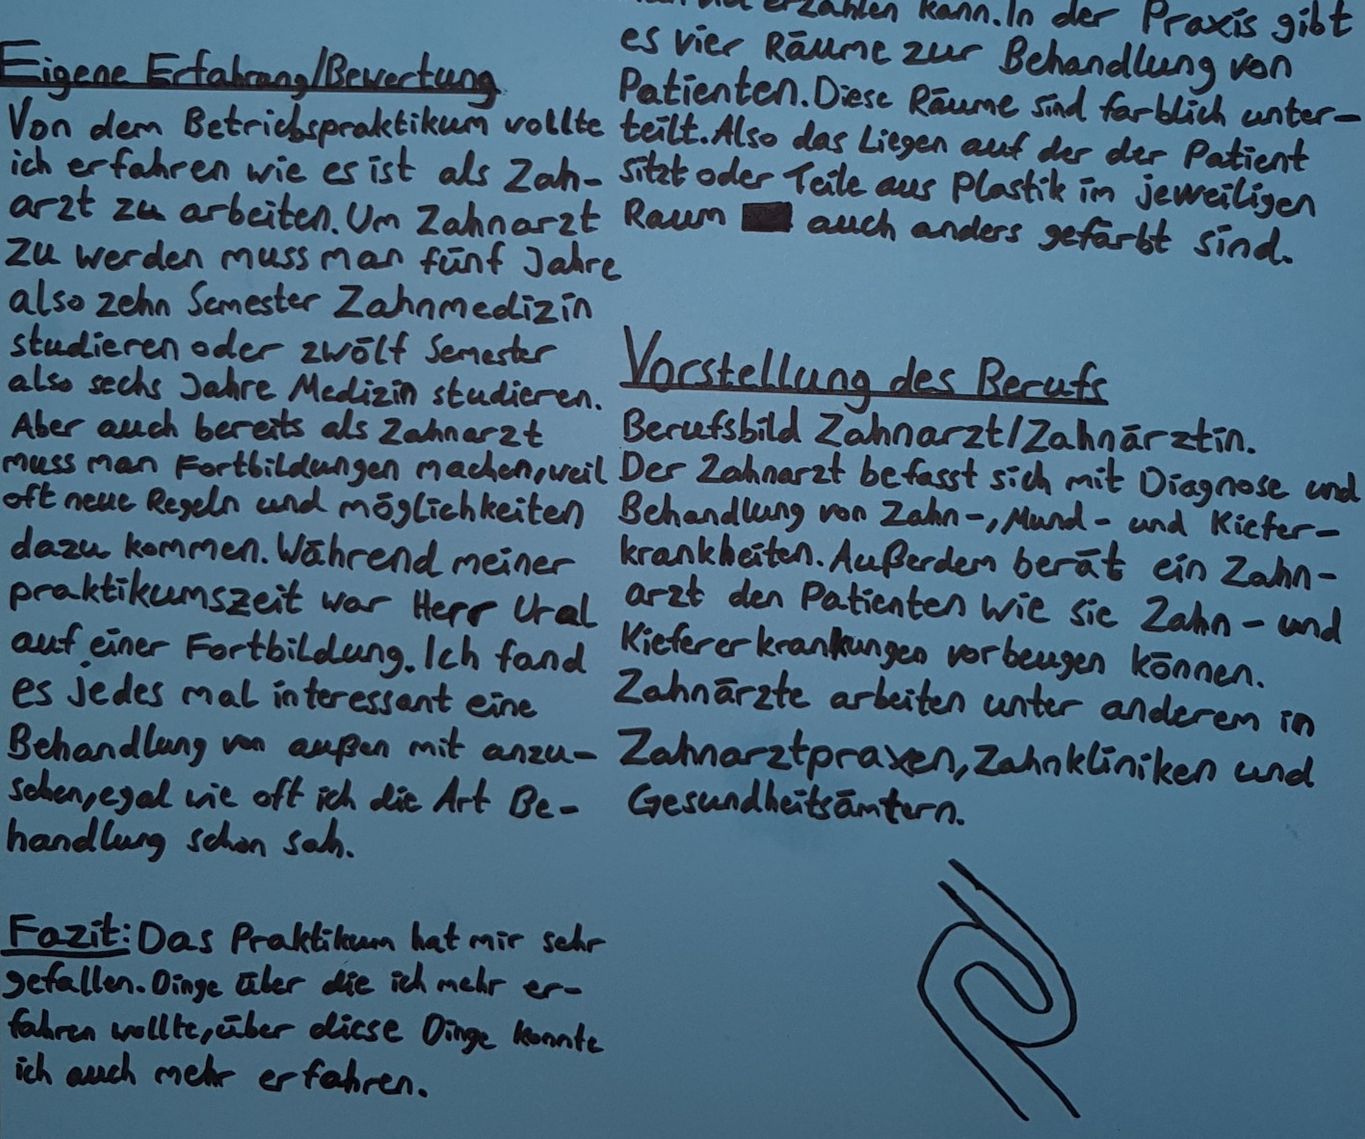 Eigene Erfahrung/Bewertung
Von dem Betriebspraktikum wollte
ich erfahren wie es ist als Zah-
arzt zu arbeiten. Um Zahnarzt
zu werden muss man fünf Jahre
also zehn Semester Zahnmedizin
studieren oder zwölf Semester
also sechs Jahre Medizin studieren.
Aber auch bereits als Zahnarzt
muss man Fortbildungen machen, weil
oft neue Regeln und möglichkeiten
dazu kommen. Während meiner
praktikumszeit war Herr Ural
auf einer Fortbildung. Ich fand
es jedes mal interessant eine
Behandlung von außen mit anzu-
sehen, egal wie oft ich die Art Be-
handlung schon sah.
Fazit: Das Praktikum hat mir sehr
gefallen. Dinge über die ich mehr er-
fahren wollte, über diese Dinge konnte
ich auch mehr erfahren.
erzählen kann. In der Praxis gibt
es vier Räume zur Behandlung von
Patienten. Diese Räume sind farblich unter-
teilt. Also das Liegen auf der der Patient
sitzt oder Teile aus Plastik im jeweiligen
Raum auch anders gefärbt sind.
Vorstellung des Berufs
Berufsbild Zahnarzt/Zahnärztin.
Der Zahnarzt befasst sich mit Diagnose und
Behandlung von Zahn-, Mund- und Kiefer-
krankheiten. Außerdem berät ein Zahn-
arzt den Patienten wie sie Zahn- und
Kiefererkrankungen vorbeugen können.
Zahnärzte arbeiten unter anderem in
Zahnarztpraxen, Zahnkliniken und
Gesundheitsämtern.